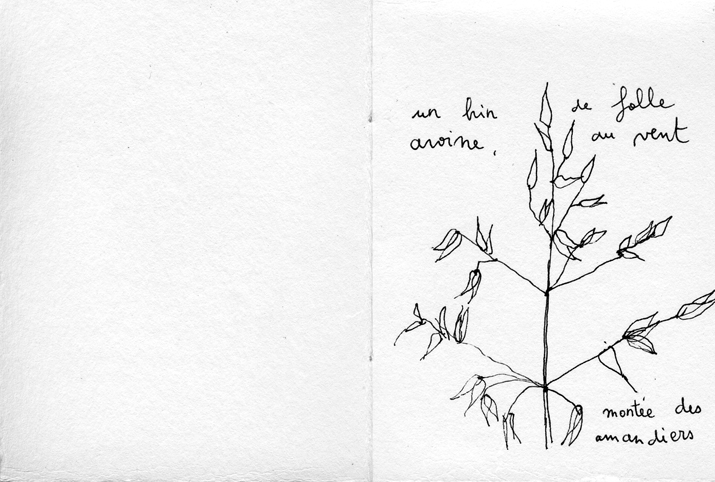 un brin de folle
avoine, au vent
montée des
amandiers